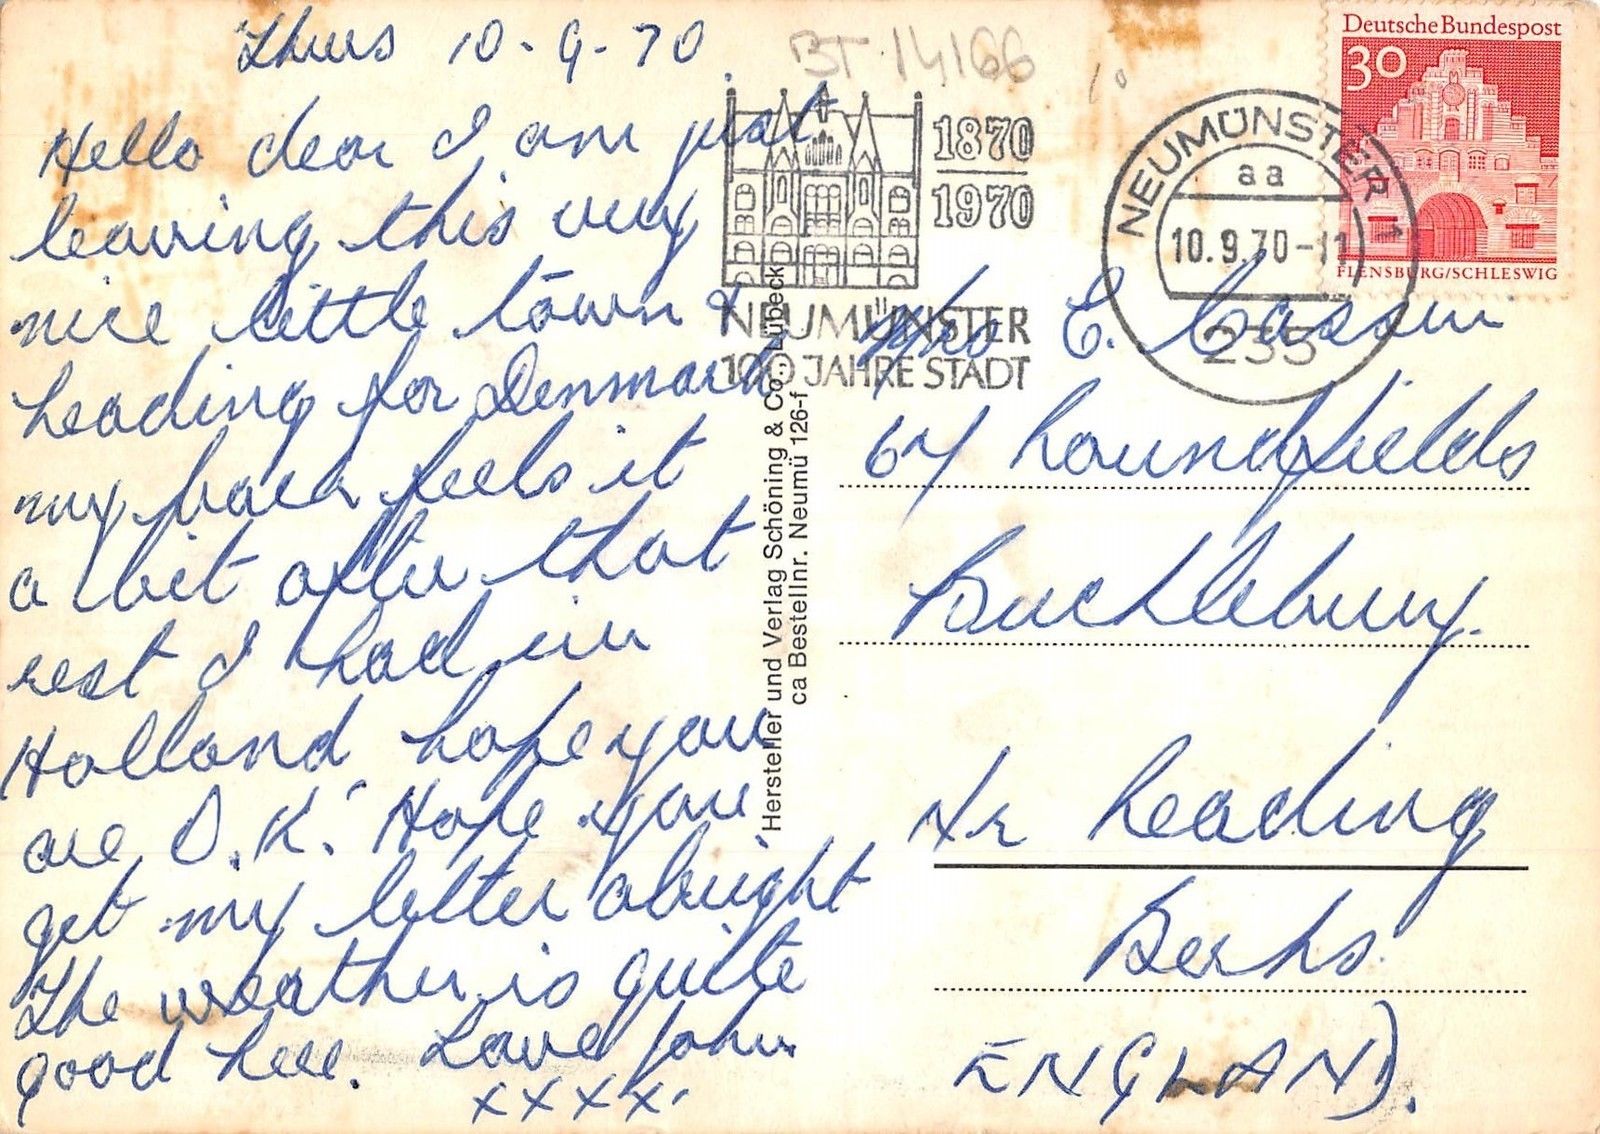 Thurs 10-9-70
Hello dear I am just
leaving this very
nice little town &
heading for Denmark
my back feels it
a bit after that
rest I had in
Holland hope you
are O.K. Hope you
get my letter alright
The weather is quite
good here. Love John.
xxxx.
BT 14166
1870
1970
NEUMÜNSTER
100 JAHRE STADT
NEUMÜNSTER 1
aa
10.9.70-11
235
Deutsche Bundespost
30
FLENSBURG/SCHLESWIG
Hersteller und Verlag Schöning & Co., Lübeck
ca Bestellnr. Neumü 126-f
Mrs E. Cassin
64 Roundfields
Bucklebury.
Nr Reading
Berks.
ENGLAND.